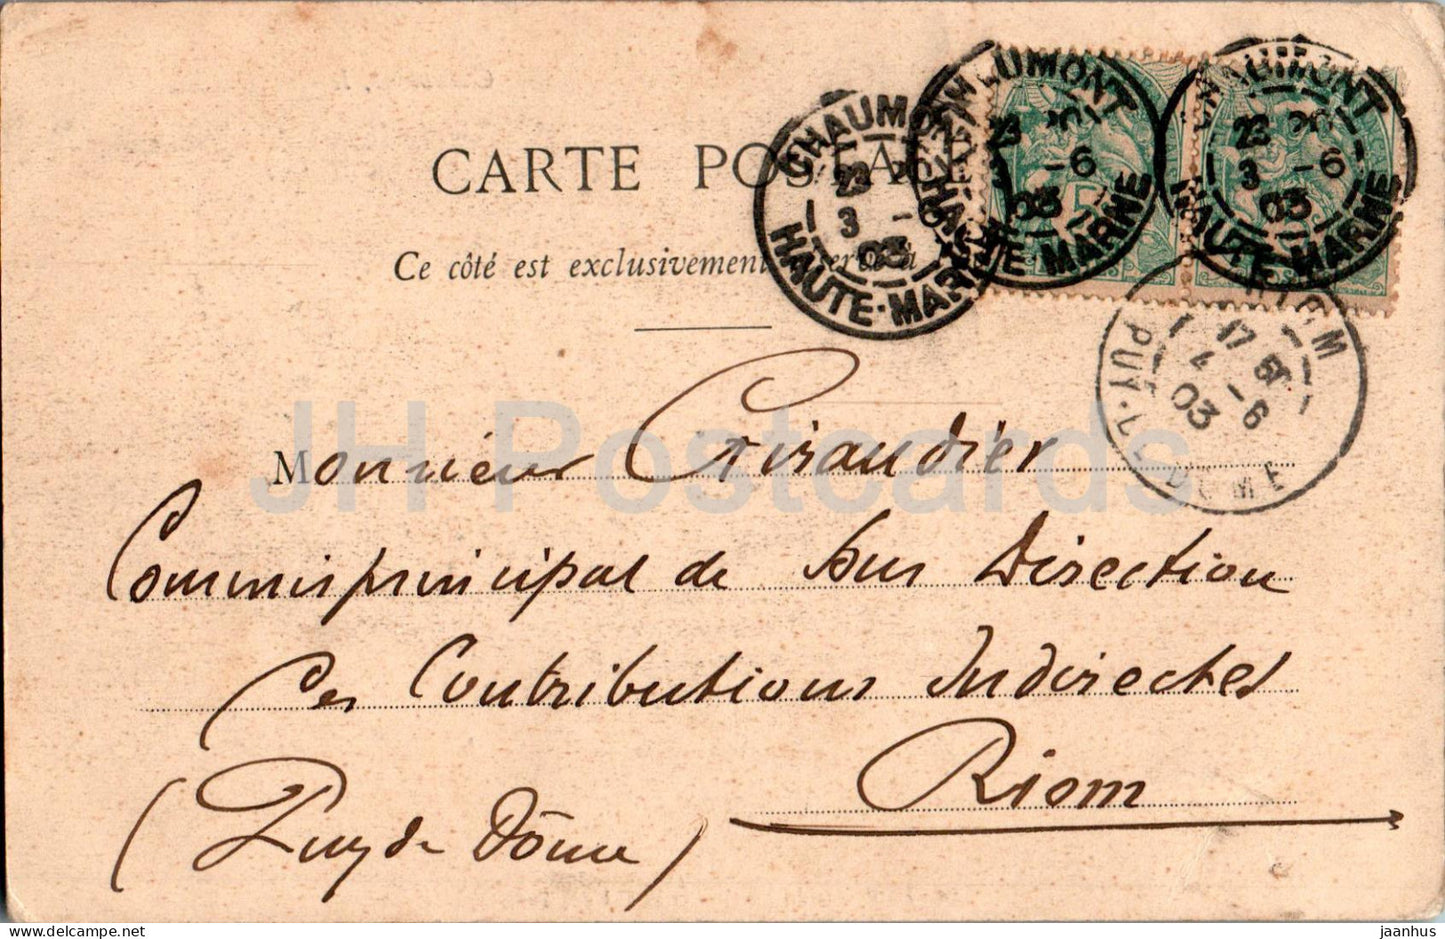 CARTE POSTALE
Ce côté est exclusivement réservé à
CHAUMONT
HAUTE-MARNE
23
3 -6
03
CHAUMONT
HAUTE-MARNE
23
-6
03
5
CHAUMONT
HAUTE-MARNE
23
3 -6
03
RIOM
17
4 -6
03
PUY-DE-DOME
Monsieur Giraudier
Commis principal de Sous Direction
des Contributions Indirectes
Riom
(Puy de Dôme)
JH Postcards
delcampe.net
jaanhus